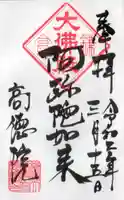 奉拝
三月十五日
大佛
阿弥陀如来
高徳院